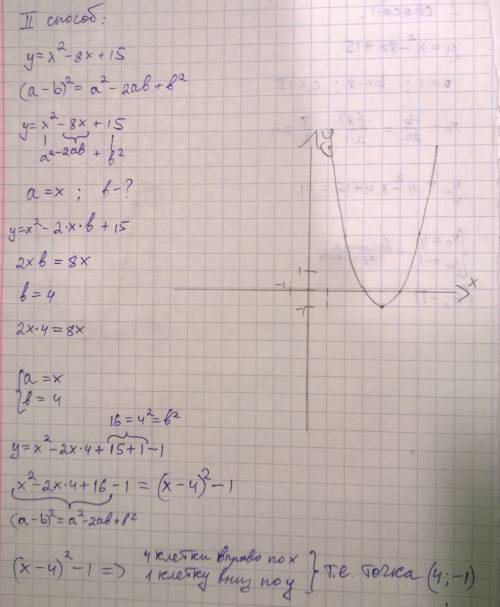 II способ:
y = x² - 8x + 15
(a - b)² = a² - 2ab + b²
y = x² - 8x + 15
a² - 2ab + b²
a = x ; b - ?
y = x² - 2·x·b + 15
2xb = 8x
b = 4
2x·4 = 8x
{a = x
{b = 4
16 = 4² = b²
y = x² - 2x·4 + 15 + 1 - 1
x² - 2x·4 + 16 - 1 = (x - 4)² - 1
(a - b)² = a² - 2ab + b²
(x - 4)² - 1 => 4 клетки вправо по x
1 клетку вниз по y } т.е. точка (4; -1)
y
1
-1
1
-1
x